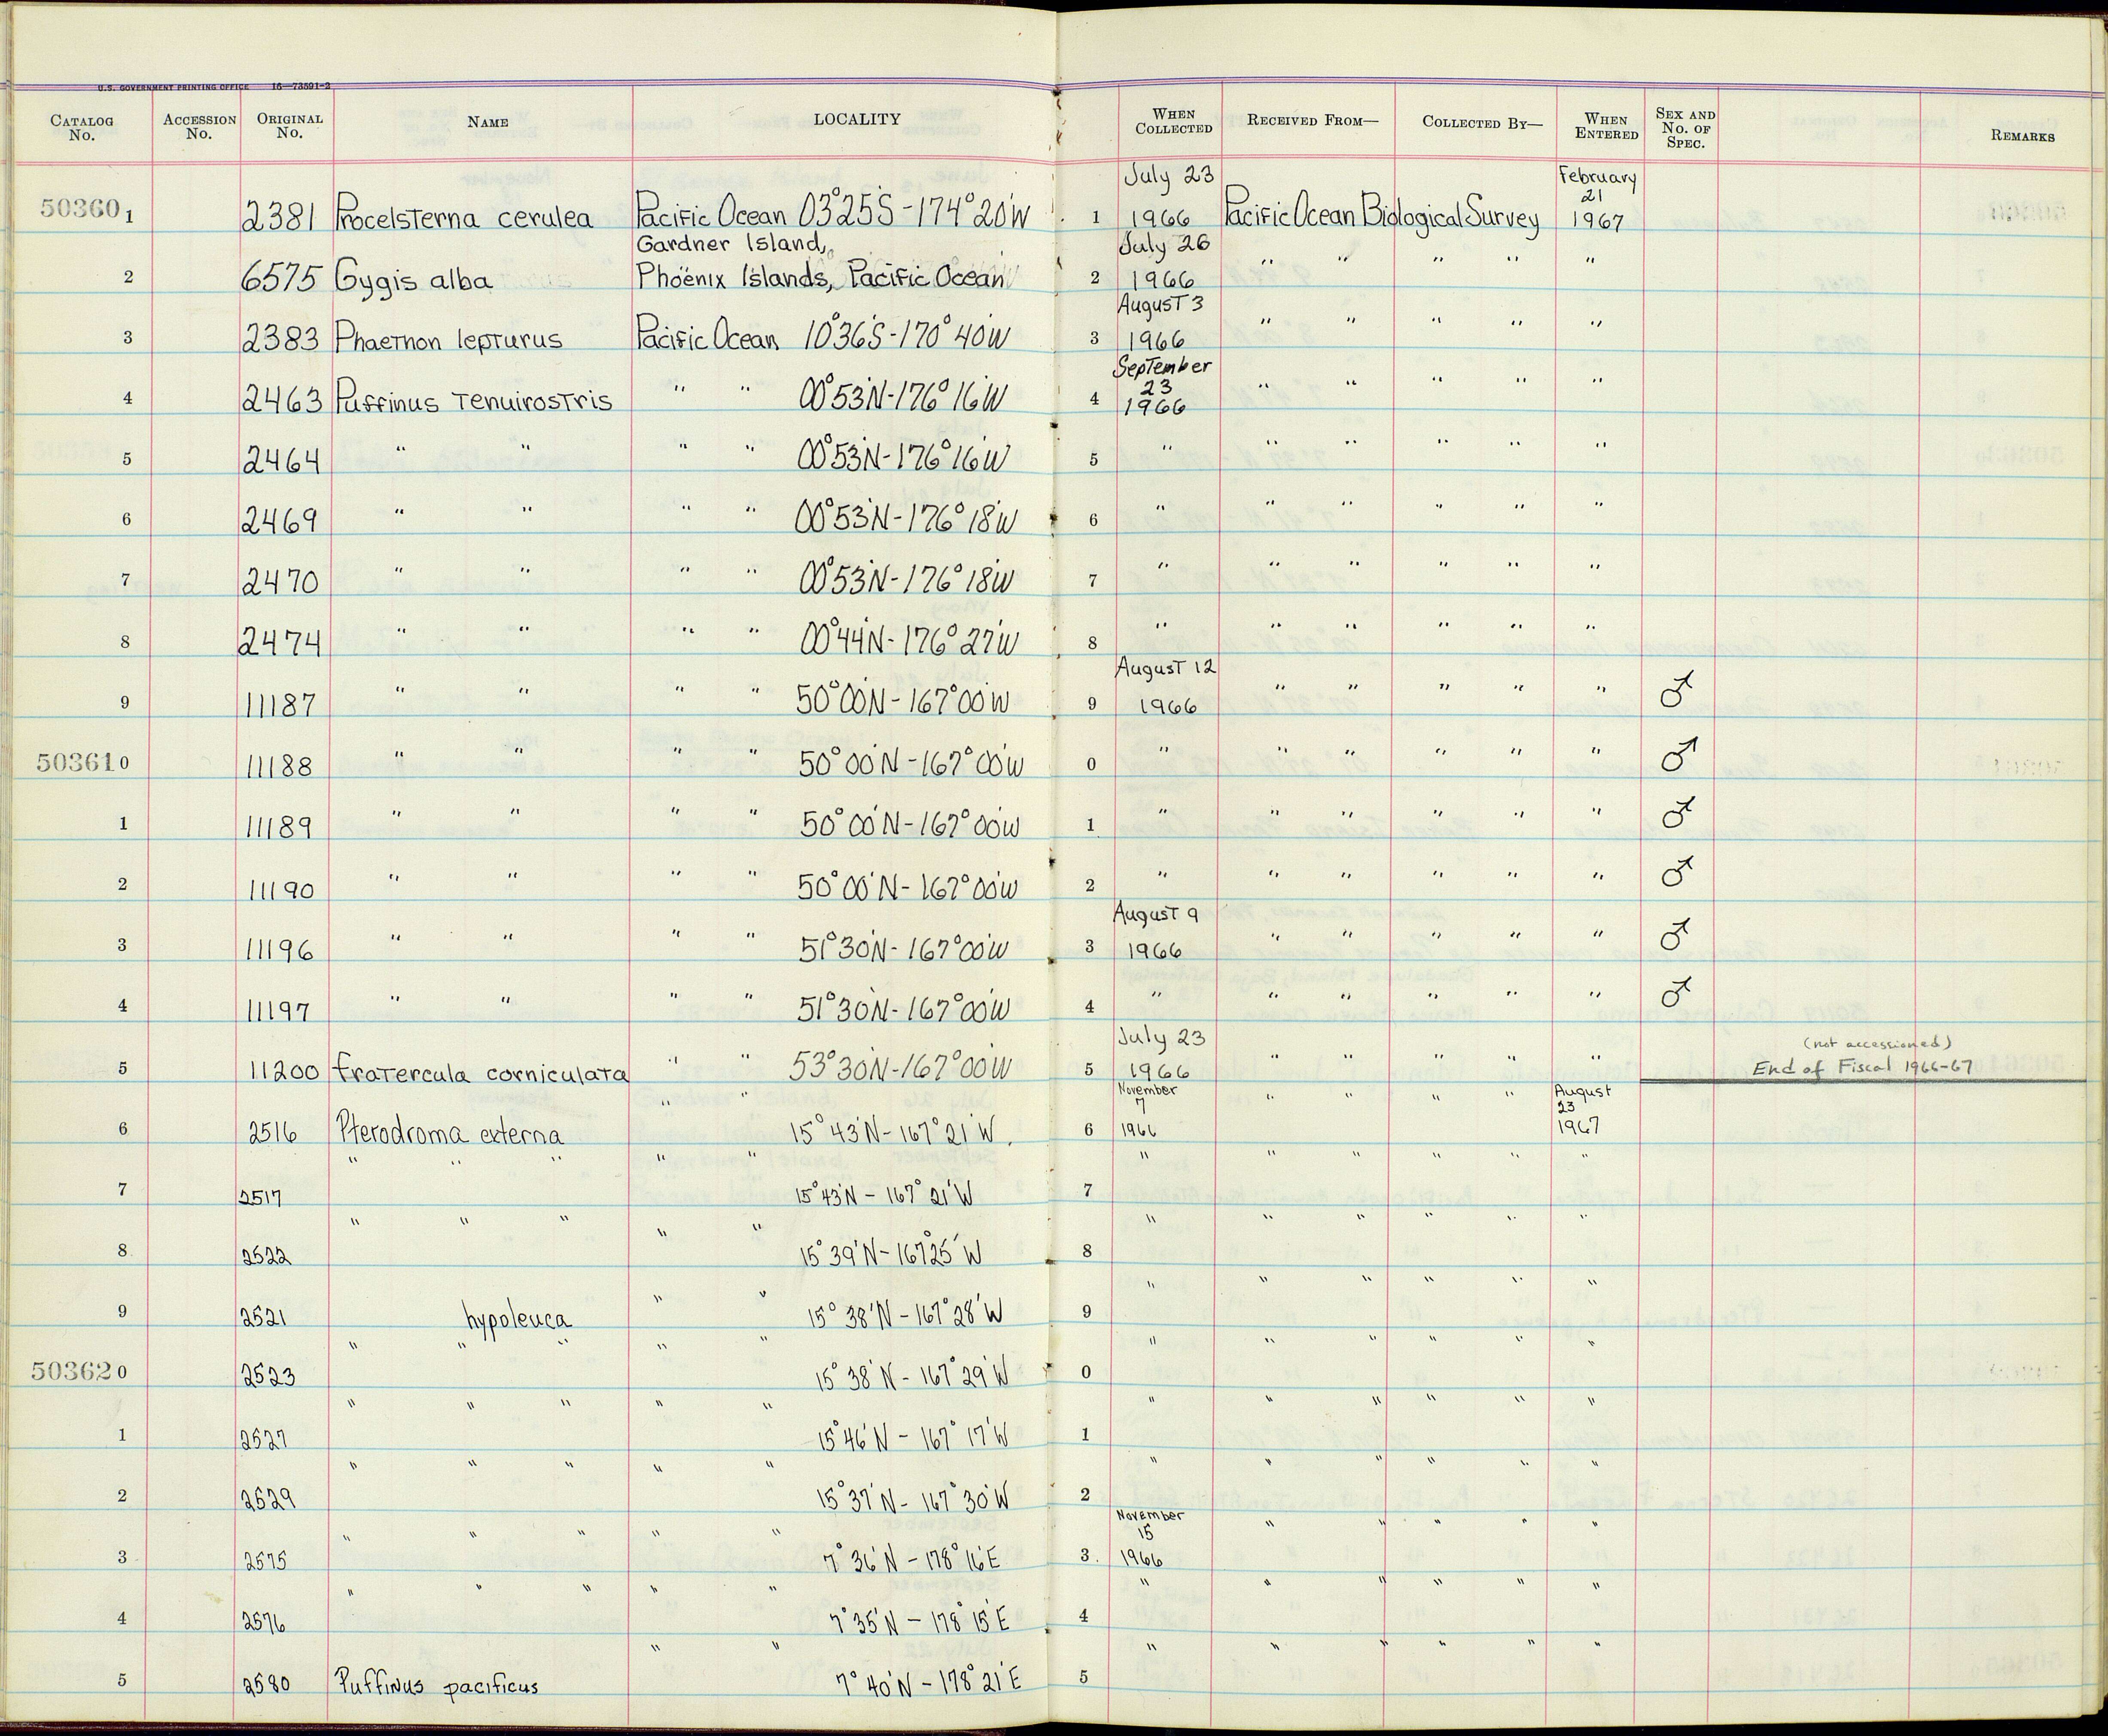 U.S. GOVERNMENT PRINTING OFFICE 16—73591-2
CATALOG No. ACCESSION No. ORIGINAL No. NAME LOCALITY WHEN COLLECTED RECEIVED FROM— COLLECTED BY— WHEN ENTERED SEX AND No. OF SPEC. REMARKS
503601 2381 Procelsterna cerulea Pacific Ocean 03°25'S-174°20'W 1 July 23 1966 Pacific Ocean Biological Survey February 21 1967
2 6575 Gygis alba Gardner Island, Phoenix Islands, Pacific Ocean 2 July 26 1966 " " " " "
3 2383 Phaethon lepturus Pacific Ocean 10°36'S-170°40'W 3 August 3 1966 " " " " "
4 2463 Puffinus tenuirostris " " 00°53'N-176°16'W 4 September 23 1966 " " " " "
5 2464 " " " " 00°53'N-176°16'W 5 " " " " " "
6 2469 " " " " 00°53'N-176°18'W 6 " " " " " "
7 2470 " " " " 00°53'N-176°18'W 7 " " " " " "
8 2474 " " " " 00°44'N-176°27'W 8 " " " " " "
9 11187 " " " " 50°00'N-167°00'W 9 August 12 1966 " " " " " ♂
503610 11188 " " " " 50°00'N-167°00'W 0 " " " " " " ♂
1 11189 " " " " 50°00'N-167°00'W 1 " " " " " " ♂
2 11190 " " " " 50°00'N-167°00'W 2 " " " " " " ♂
3 11196 " " " " 51°30'N-167°00'W 3 August 9 1966 " " " " " ♂
4 11197 " " " " 51°30'N-167°00'W 4 " " " " " " ♂
5 11200 Fratercula corniculata " " 53°30'N-167°00'W 5 July 23 1966 " " " " " (not accessioned) End of Fiscal 1966-67
6 2516 Pterodroma externa " " 15°43'N-167°21'W. 6 November 7 1966 " " " " August 23 1967
7 2517 " " " " " 15°43'N-167°21'W 7 " " " " " "
8 2522 " " " " " 15°39'N-167°25'W 8 " " " " " "
9 2521 hypoleuca " " 15°38'N-167°28'W 9 " " " " " "
503620 2523 " " " " " 15°38'N-167°29'W 0 " " " " " "
1 2527 " " " " " 15°46'N-167°17'W 1 " " " " " "
2 2529 " " " " " 15°37'N-167°30'W 2 " " " " " "
3 2575 " " " " " 7°36'N-178°16'E 3 November 15 1966 " " " " "
4 2576 " " " " " 7°35'N-178°15'E 4 " " " " " "
5 2580 Puffinus pacificus " " 7°40'N-178°21'E 5 " " " " " "